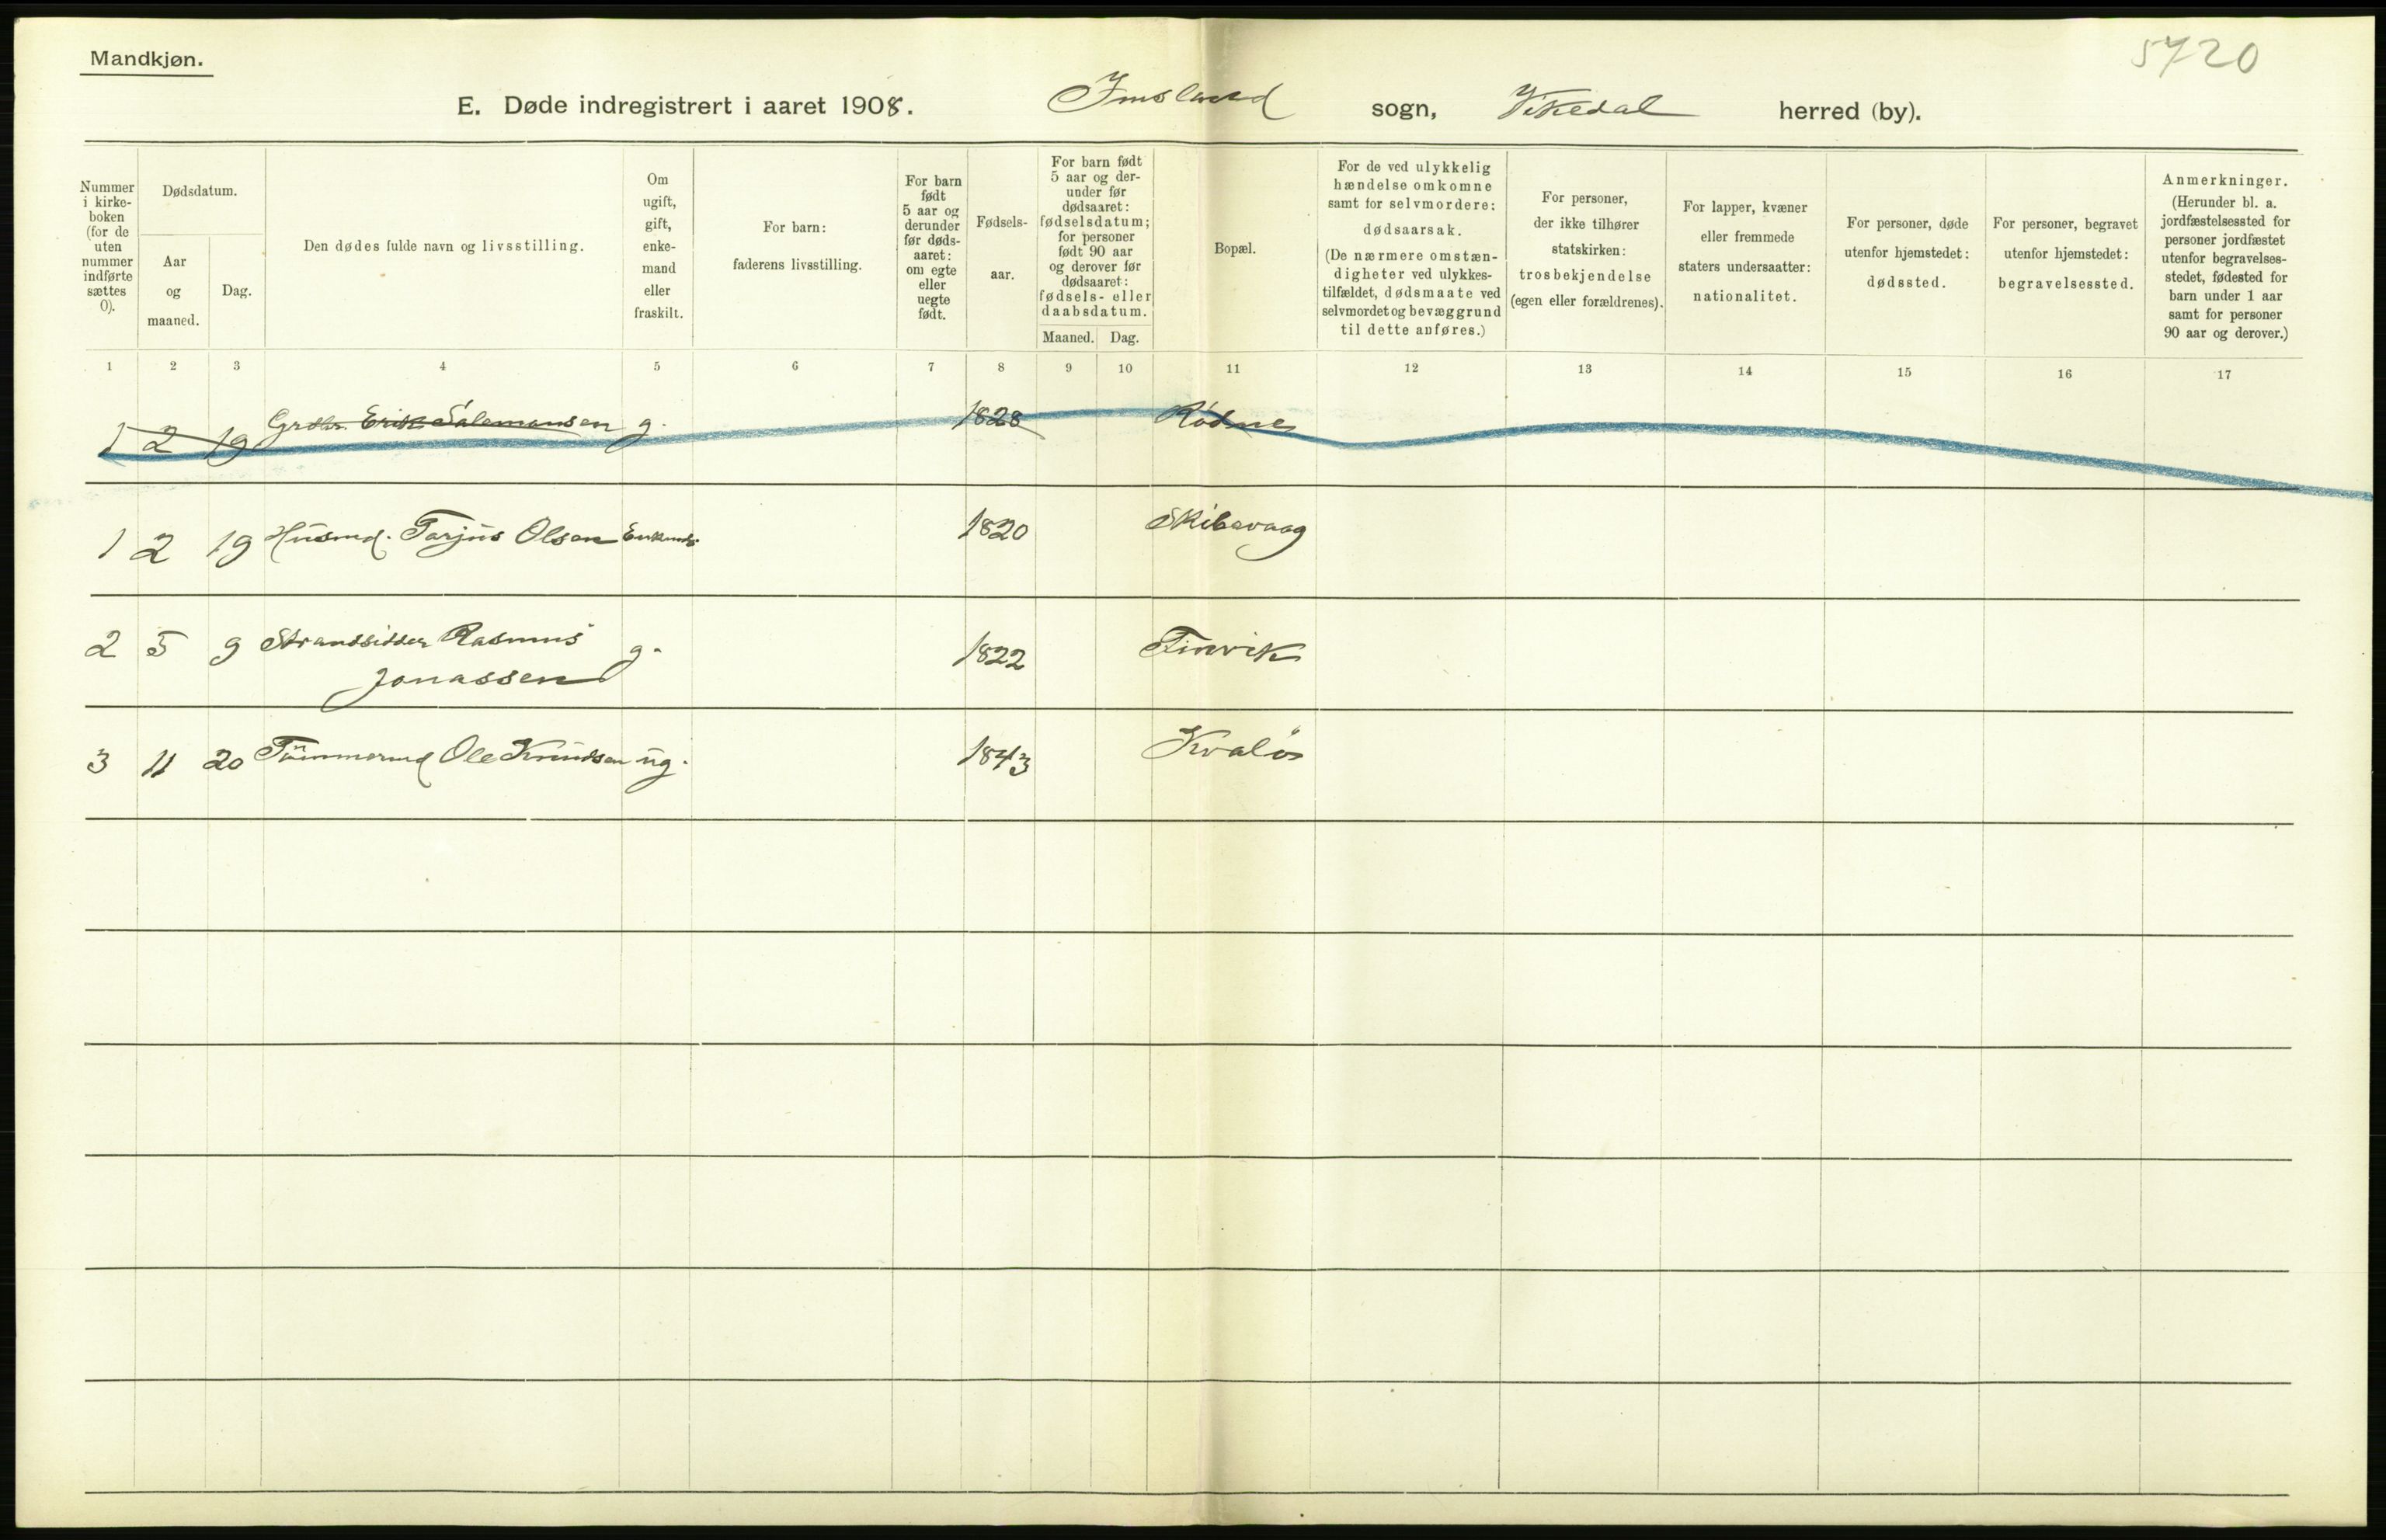 Mandkjøn.
5720
E. Døde indregistrert i aaret 1908. Imsland sogn, Vikedal herred (by).
Nummer i kirke-boken (for de uten nummer indførte sættes 0).
Dødsdatum.
Aar og maaned.
Dag.
Den dødes fulde navn og livsstilling.
Om ugift, gift, enke-mand eller fraskilt.
For barn: faderens livsstilling.
For barn født 5 aar og derunder før døds-aaret: om egte eller uegte født.
Fødsels-aar.
For barn født 5 aar og der-under før dødsaaret: fødselsdatum; for personer født 90 aar og derover før dødsaaret: fødsels- eller daabsdatum.
Maaned. Dag.
Bopæl.
For de ved ulykkelig hændelse omkomne samt for selvmordere: dødsaarsak. (De nærmere omstæn-digheter ved ulykkes-tilfældet, dødsmaate ved selvmordet og bevæggrund til dette anføres.)
For personer, der ikke tilhører statskirken: trosbekjendelse (egen eller forældrenes).
For lapper, kvæner eller fremmede staters undersaatter: nationalitet.
For personer, døde utenfor hjemstedet: dødssted.
For personer, begravet utenfor hjemstedet: begravelsessted.
Anmerkninger. (Herunder bl. a. jordfæstelsessted for personer jordfæstet utenfor begravelses-stedet, fødested for barn under 1 aar samt for personer 90 aar og derover.)
1 2 3 4 5 6 7 8 9 10 11 12 13 14 15 16 17
1 2 19 Grdbr. Erik Salamonsen g. 1828 Rødne
1 2 19 Husmd. Tarjus Olsen Enkmd. 1820 Skibavaag
2 5 9 Strandsidder Rasmus
Jonassen g. 1822 Finvik
3 11 20 Tömmermd Ole Knudsen ug. 1843 Kvalö